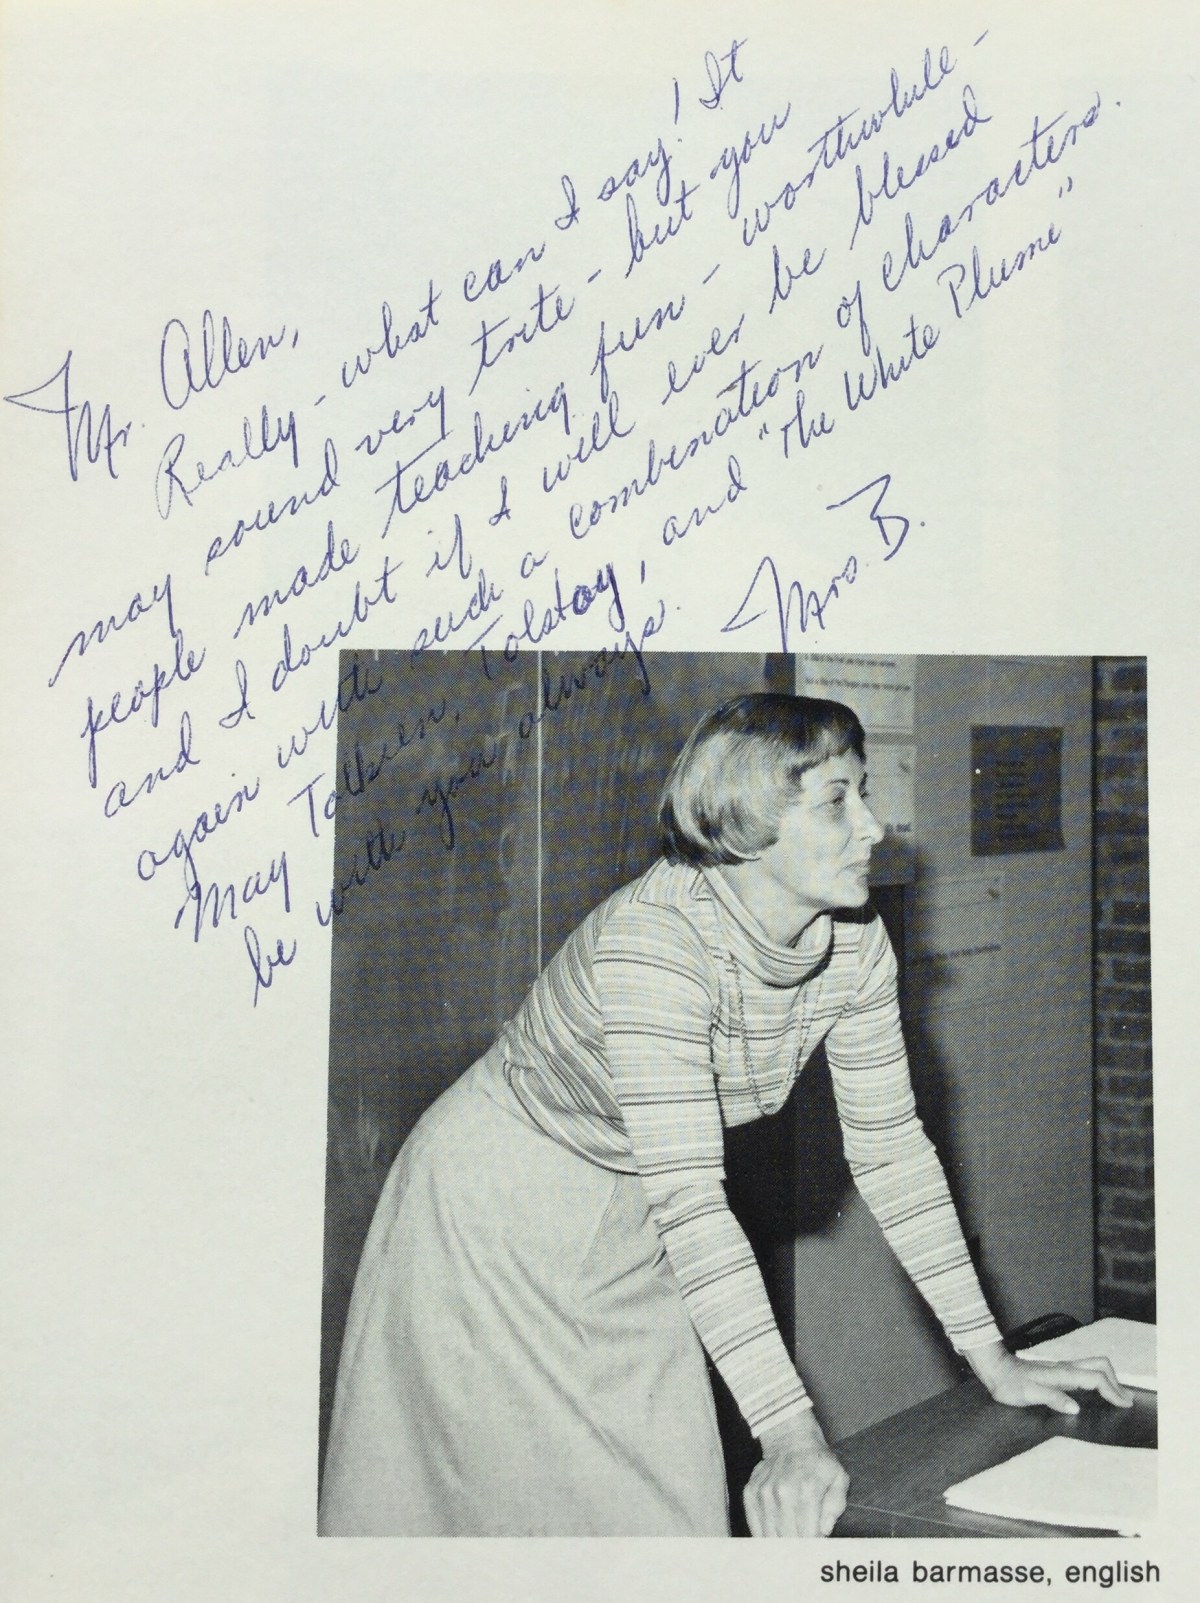 Mr. Allen,
Really - what can I say! It
may sound very trite - but you
people made teaching fun - worthwhile -
and I doubt if I will ever be blessed
again with such a combination of characters.
May Tolkien, Tolstoy, and "The White Plume"
be with you always.
Mrs. B.
sheila barmasse, english